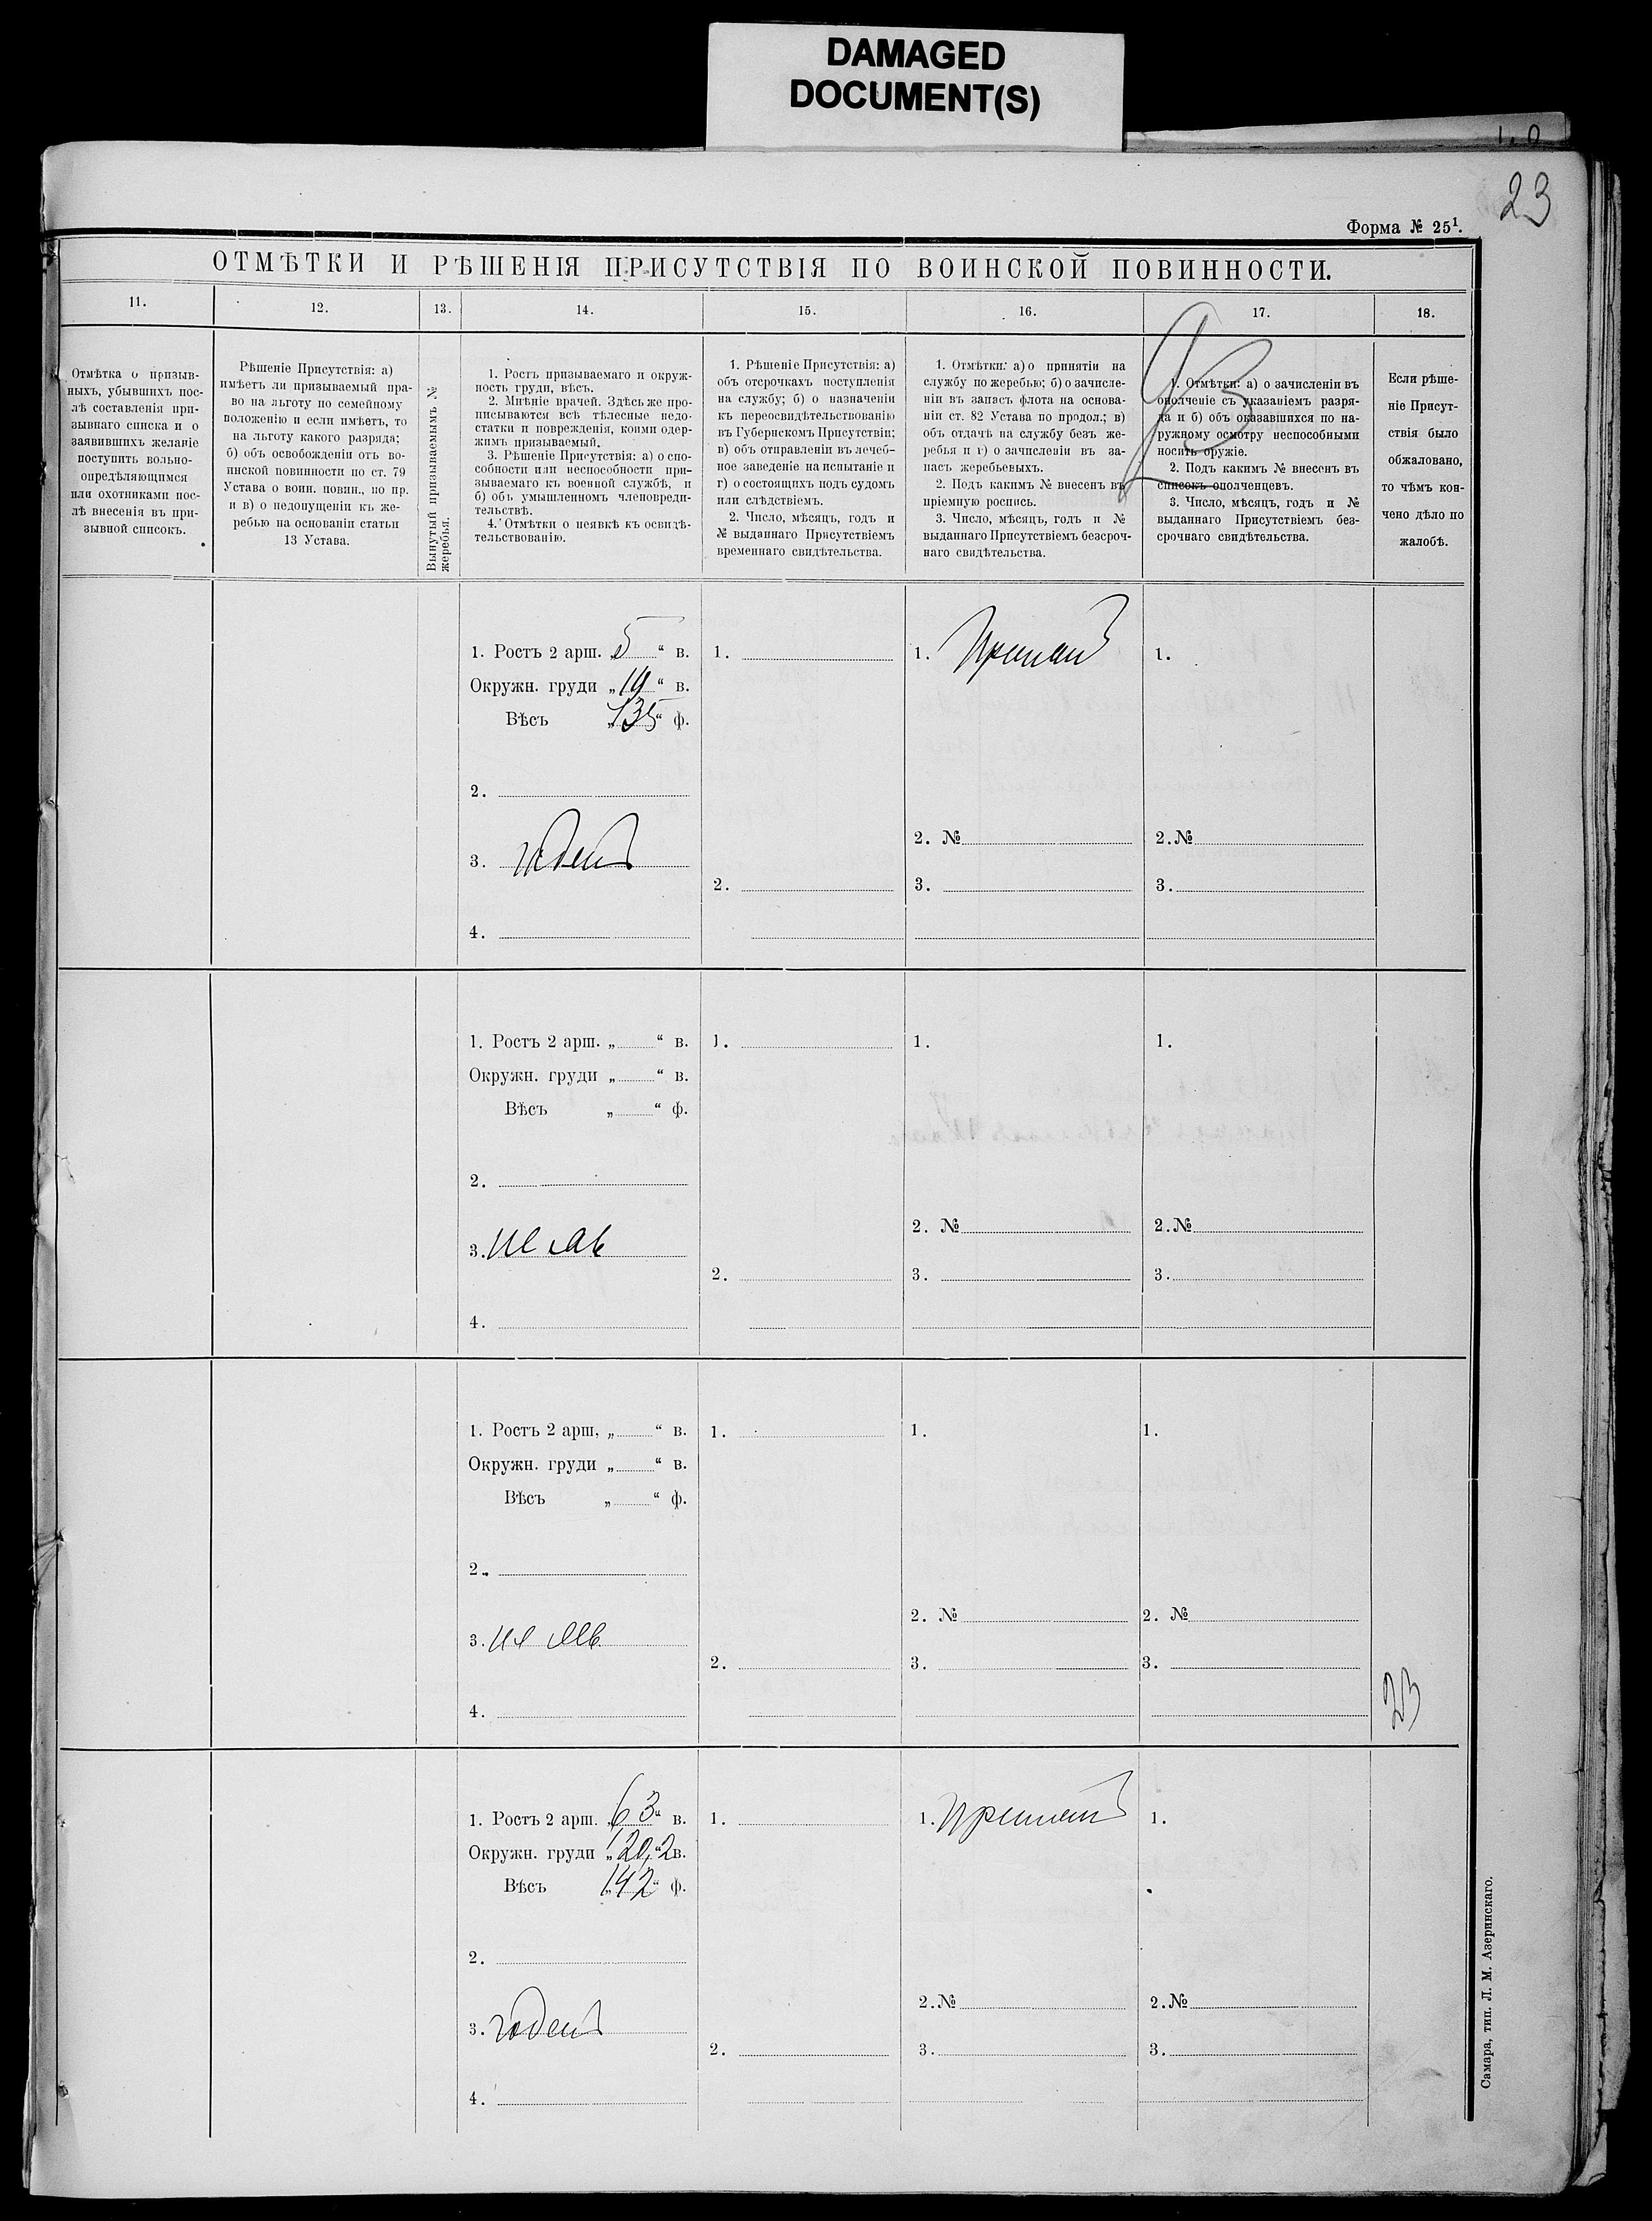 DAMAGED
DOCUMENT(S)
23
Форма № 25¹.
ОТМѢТКИ И РѢШЕНІЯ ПРИСУТСТВІЯ ПО ВОИНСКОЙ ПОВИННОСТИ.
11.
12.
13.
14.
15.
16.
17.
18.
Отмѣтка о призыв-
ныхъ, убывшихъ пос-
лѣ составленія при-
зывнаго списка и о
заявившихъ желаніе
поступить вольно-
опредѣляющимся
или охотниками пос-
лѣ внесенія въ при-
зывной списокъ.
Рѣшеніе Присутствія: а)
имѣетъ ли призываемый пра-
во на льготу по семейному
положенію и если имѣетъ, то
на льготу какого разряда;
б) объ освобожденіи отъ во-
инской повинности по ст. 79
Устава о воин. повин., по пр.
и в) о недопущеніи къ же-
ребью на основаніи статьи
13 Устава.
Вынутый призываемымъ №
жеребья.
1. Ростъ призываемаго и окруж-
ность груди, вѣсъ.
2. Мнѣніе врачей. Здѣсь же про-
писываются всѣ тѣлесные недо-
статки и поврежденія, коими одер-
жимъ призываемый.
3. Рѣшеніе Присутствія: а) о спо-
собности или неспособности при-
зываемаго къ военной службѣ, и
б) объ умышленномъ членовреди-
тельствѣ.
4. Отмѣтки о неявкѣ къ освидѣ-
тельствованію.
1. Рѣшеніе Присутствія: а)
объ отсрочкахъ поступленія
на службу; б) о назначеніи
къ переосвидѣтельствованію
въ Губернскомъ Присутствіи;
в) объ отправленіи въ лечеб-
ное заведеніе на испытаніе и
г) о состоящихъ подъ судомъ
или слѣдствіемъ.
2. Число, мѣсяцъ, годъ и
№ выданнаго Присутствіемъ
временнаго свидѣтельства.
1. Отмѣтки: а) о принятіи на
службу по жеребью; б) о зачисле-
ніи въ запасъ флота на основа-
ніи ст. 82 Устава по продол.; в)
объ отдачѣ на службу безъ же-
ребья и г) о зачисленіи въ за-
пасъ жеребьевыхъ.
2. Подъ какимъ № внесенъ въ
пріемную роспись.
3. Число, мѣсяцъ, годъ и №
выданнаго Присутствіемъ безсроч-
наго свидѣтельства.
23
1. Отмѣтки: а) о зачисленіи въ
ополченіе съ указаніемъ разря-
да и б) объ оказавшихся по на-
ружному осмотру неспособными
носить оружіе.
2. Подъ какимъ № внесенъ въ
списокъ ополченцевъ.
3. Число, мѣсяцъ, годъ и №
выданнаго Присутствіемъ без-
срочнаго свидѣтельства.
Если рѣше-
ніе Присут-
ствія было
обжаловано,
то чѣмъ кон-
чено дѣло по
жалобѣ.
1. Ростъ 2 арш. „5“ в.
Окружн. груди „19“ в.
Вѣсъ „135“ ф.
2.
3. годенъ
4.
1.
2.
1. Принятъ
2. №
3.
1.
2. №
3.
1. Ростъ 2 арш. „ “ в.
Окружн. груди „ “ в.
Вѣсъ „ “ ф.
2.
3. не яв
4.
1.
2.
1.
2. №
3.
1.
2. №
3.
1. Ростъ 2 арш. „ “ в.
Окружн. груди „ “ в.
Вѣсъ „ “ ф.
2.
3. не яв
4.
1.
2.
1.
2. №
3.
1.
2. №
3.
23
1. Ростъ 2 арш. „63“ в.
Окружн. груди „20,“2 в.
Вѣсъ „142“ ф.
2.
3. годенъ
4.
1.
2.
1. Принятъ
2. №
3.
1.
2. №
3.
Самара, тип. Л. М. Азеринскаго.